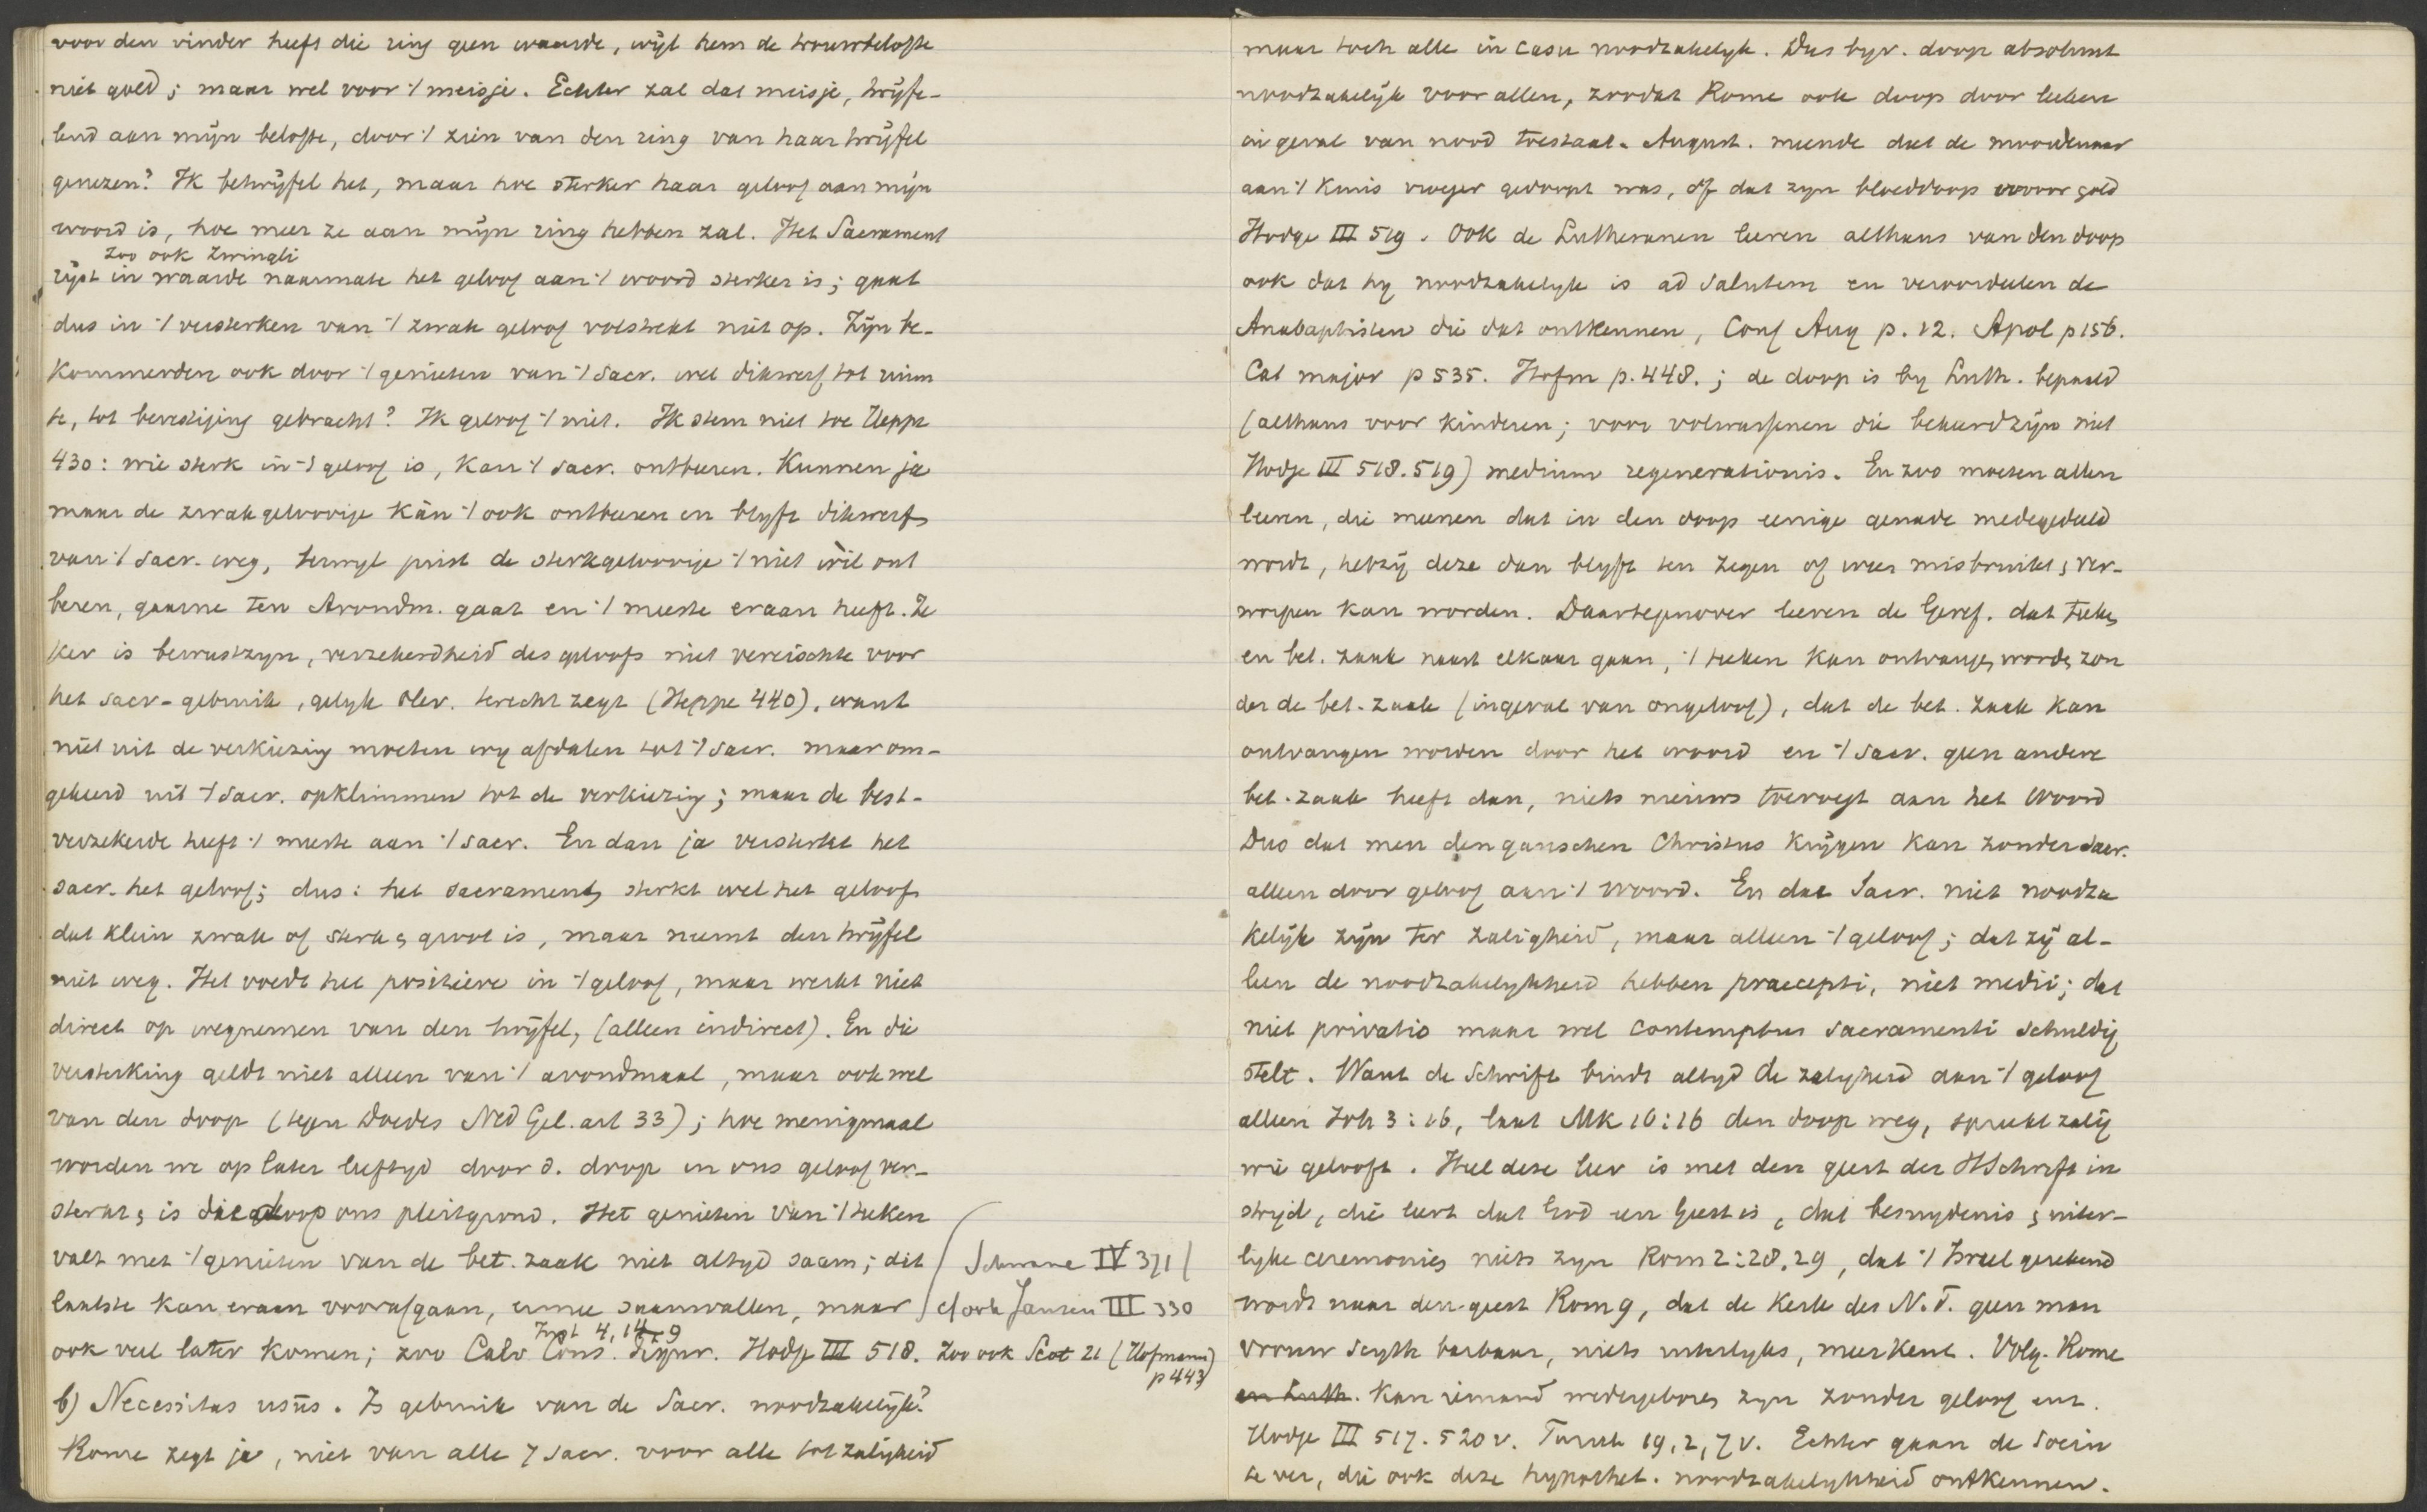 voor den vinder heeft die ring geen waarde, wijl hem de trouwbelofte
niet gold; maar wel voor 't meisje. Echter zal dat meisje, twijfe-
lend aan mijn belofte, door 't zien van den ring van haar twijfel
genezen? Ik betwijfel het, maar hoe sterker haar geloof aan mijn
woord is, hoe meer ze aan mijn ring hebben zal. Het Sacrament
Zoo ook Zwingli
rijst in waarde naarmate het geloof aan 't woord sterker is; gaat
dus in 't versterken van 't zwak geloof volstrekt niet op. Zijn be-
kommerden ook door 't genieten van 't sacr. wel dikwerf tot ruim
te, tot bevestiging gebracht? Ik geloof 't niet. Ik stem niet toe Heppe
430: wie sterk in 't geloof is, kan 't sacr. ontberen. Kunnen ja
maar de zwakgeloovige kàn 't ook ontberen en blyft dikwerf
van 't sacr. weg, terwyl juist de sterkgeloovige 't niet wìl ont
beren, gaarne ten Avondm. gaat en 't meeste eraan heeft. Ze
ker is bewustzyn, verzekerdheid des geloofs niet vereischte voor
het sacr-gebruik, gelyk Olev. terecht zegt (Heppe 440), want
niet uit de verkiezing moeten wy afdalen tot 't sacr. maar om-
gekeerd uit 't sacr. opklimmen tot de verkiezing; maar de best-
verzekerde heeft 't meeste aan 't sacr. En dan ja versterkt het
sacr. het geloof; dus: het sacrament sterkt wel het geloof
dat klein zwak of sterk & groot is, maar neemt den twijfel
niet weg. Het voedt het positieve in 't geloof, maar werkt niet
direct op wegnemen van den twijfel, (alleen indirect). En die
versterking geldt niet alleen van 't avondmaal, maar ook wel
van den doop (tegen Doedes Ned Gel. art 33); hoe menigmaal
worden we op later leeftyd door d. doop in ons geloof ver-
sterkt, is die doop ons pleitgrond. Het genieten van 't teken
valt met 't genieten van de bet. zaak niet altyd saam; dit
laatste kan eraan voorafgaan, ermee saamvallen, maar
Schwane IV 371
cf ook Jansen III 330
Inst 4, 14, 9
ook veel later komen; zoo Calv Cons. Tigur. Hodge III 518. Zoo ook Scot 21 (Hofmann)
p 443
b) Necessitas usūs. Is gebruik van de Sacr. noodzakelijk?
Rome zegt ja, niet van alle 7 sacr. voor alle tot zaligheid
maar toch alle in casu noodzakelyk. Dus byv. doop absoluut
noodzakelijk voor allen, zoodat Rome ook doop door leeken
in geval van nood toestaat. August. meende dat de moordenaar
aan 't kruis vroeger gedoopt was, òf dat zyn bloeddoop ervoor gold
Hodge III 519. Ook de Lutheranen leeren althans van den doop
ook dat hy noodzakelyk is ad salutem en veroordeelen de
Anabaptisten die dat ontkennen, Conf Aug p. 12. Apol p 156.
Cat major p 535. Hofm p. 448.; de doop is by Luth. bepaald
(althans voor kinderen; voor volwassenen die bekeerd zijn niet
Hodge III 518. 519) medium regenerationis. En zoo moeten allen
leeren, die meenen dat in den doop eenige genade medegedeeld
wordt, hetzij deze dan blyft ten zegen of weer misbruikt & ver-
worpen kan worden. Daartegenover leeren de Geref. dat teeken
en bet. zaak naast elkaar gaan, 't teeken kan ontvangen worden zon
der de bet. zaak (ingeval van ongeloof), dat de bet. zaak kan
ontvangen worden door het woord en 't sacr. geen andere
bet. zaak heeft dan, niets nieuws toevoegt aan het Woord
Dus dat men den ganschen Christus krijgen kan zonder sacr.
alleen door geloof aan 't Woord. En dat Sacr. niet noodza
kelijk zijn ter zaligheid, maar alleen 't geloof; dat zij al-
leen de noodzakelykheid hebben praecepti, niet medii; dat
niet privatio maar wel contemptus sacramenti schuldig
stelt. Want de Schrift bindt altyd de zalygheid aan 't geloof
alleen Joh 3:16, laat Mk 16:16 den doop weg, spreekt zalig
wie gelooft. Heel deze leer is met den geest der HSchrift in
strijd, die leert dat God een Geest is, dat besnydenis & uiter-
lyke ceremonies niets zyn Rom 2:28, 29, dat 't Israel gerekend
wordt naar den geest Rom 9, dat de Kerk des N.T. geen man
vrouw Scyth barbaar, niets uiterlyks, meer kent. Volg. Rome
en Luth. kan iemand wedergeboren zyn zonder geloof enz.
Hodge III 517. 520 v. Turret 19, 2, 7 v. Echter gaan de Socin
te ver, die ook deze hypothet. noodzakelykheid ontkennen.